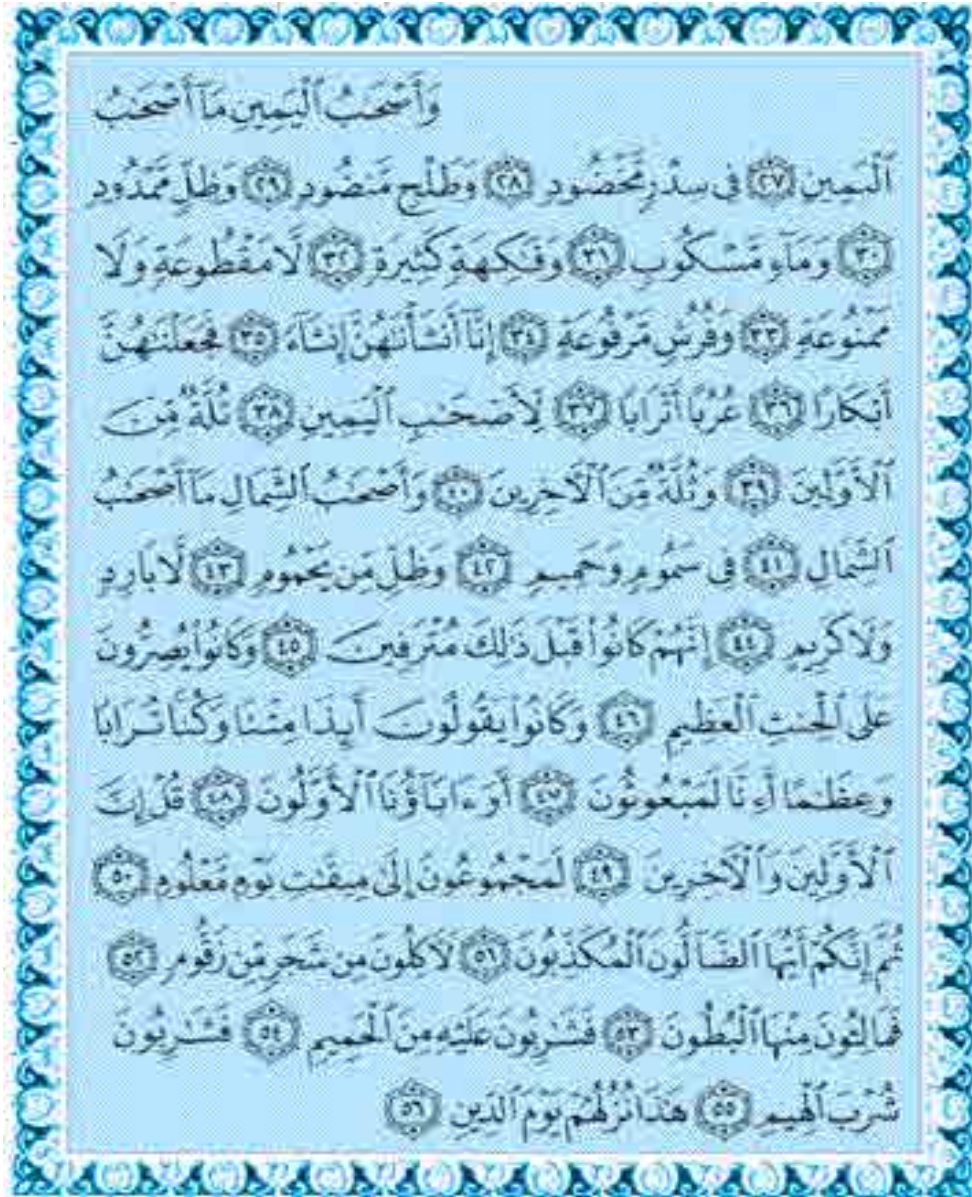 وَأَصْحَٰبُ ٱلْيَمِينِ مَآ أَصْحَٰبُ
ٱلْيَمِينِ ﴿٢٧﴾ فِى سِدْرٍ مَّخْضُودٍ ﴿٢٨﴾ وَطَلْحٍ مَّنضُودٍ ﴿٢٩﴾ وَظِلٍّ مَّمْدُودٍ
﴿٣٠﴾ وَمَآءٍ مَّسْكُوبٍ ﴿٣١﴾ وَفَٰكِهَةٍ كَثِيرَةٍ ﴿٣٢﴾ لَّا مَقْطُوعَةٍ وَلَا
مَمْنُوعَةٍ ﴿٣٣﴾ وَفُرُشٍ مَّرْفُوعَةٍ ﴿٣٤﴾ إِنَّآ أَنشَأْنَٰهُنَّ إِنشَآءً ﴿٣٥﴾ فَجَعَلْنَٰهُنَّ
أَبْكَارًا ﴿٣٦﴾ عُرُبًا أَتْرَابًا ﴿٣٧﴾ لِّأَصْحَٰبِ ٱلْيَمِينِ ﴿٣٨﴾ ثُلَّةٌ مِّنَ
ٱلْأَوَّلِينَ ﴿٣٩﴾ وَثُلَّةٌ مِّنَ ٱلْآخِرِينَ ﴿٤٠﴾ وَأَصْحَٰبُ ٱلشِّمَالِ مَآ أَصْحَٰبُ
ٱلشِّمَالِ ﴿٤١﴾ فِى سَمُومٍ وَحَمِيمٍ ﴿٤٢﴾ وَظِلٍّ مِّن يَحْمُومٍ ﴿٤٣﴾ لَّا بَارِدٍ
وَلَا كَرِيمٍ ﴿٤٤﴾ إِنَّهُمْ كَانُوا۟ قَبْلَ ذَٰلِكَ مُتْرَفِينَ ﴿٤٥﴾ وَكَانُوا۟ يُصِرُّونَ
عَلَى ٱلْحِنثِ ٱلْعَظِيمِ ﴿٤٦﴾ وَكَانُوا۟ يَقُولُونَ أَئِذَا مِتْنَا وَكُنَّا تُرَابًا
وَعِظَٰمًا أَءِنَّا لَمَبْعُوثُونَ ﴿٤٧﴾ أَوَءَابَآؤُنَا ٱلْأَوَّلُونَ ﴿٤٨﴾ قُلْ إِنَّ
ٱلْأَوَّلِينَ وَٱلْآخِرِينَ ﴿٤٩﴾ لَمَجْمُوعُونَ إِلَىٰ مِيقَٰتِ يَوْمٍ مَّعْلُومٍ ﴿٥٠﴾
ثُمَّ إِنَّكُمْ أَيُّهَا ٱلضَّآلُّونَ ٱلْمُكَذِّبُونَ ﴿٥١﴾ لَآكِلُونَ مِن شَجَرٍ مِّن زَقُّومٍ ﴿٥٢﴾
فَمَالِـُٔونَ مِنْهَا ٱلْبُطُونَ ﴿٥٣﴾ فَشَٰرِبُونَ عَلَيْهِ مِنَ ٱلْحَمِيمِ ﴿٥٤﴾ فَشَٰرِبُونَ
شُرْبَ ٱلْهِيمِ ﴿٥٥﴾ هَٰذَا نُزُلُهُمْ يَوْمَ ٱلدِّينِ ﴿٥٦﴾